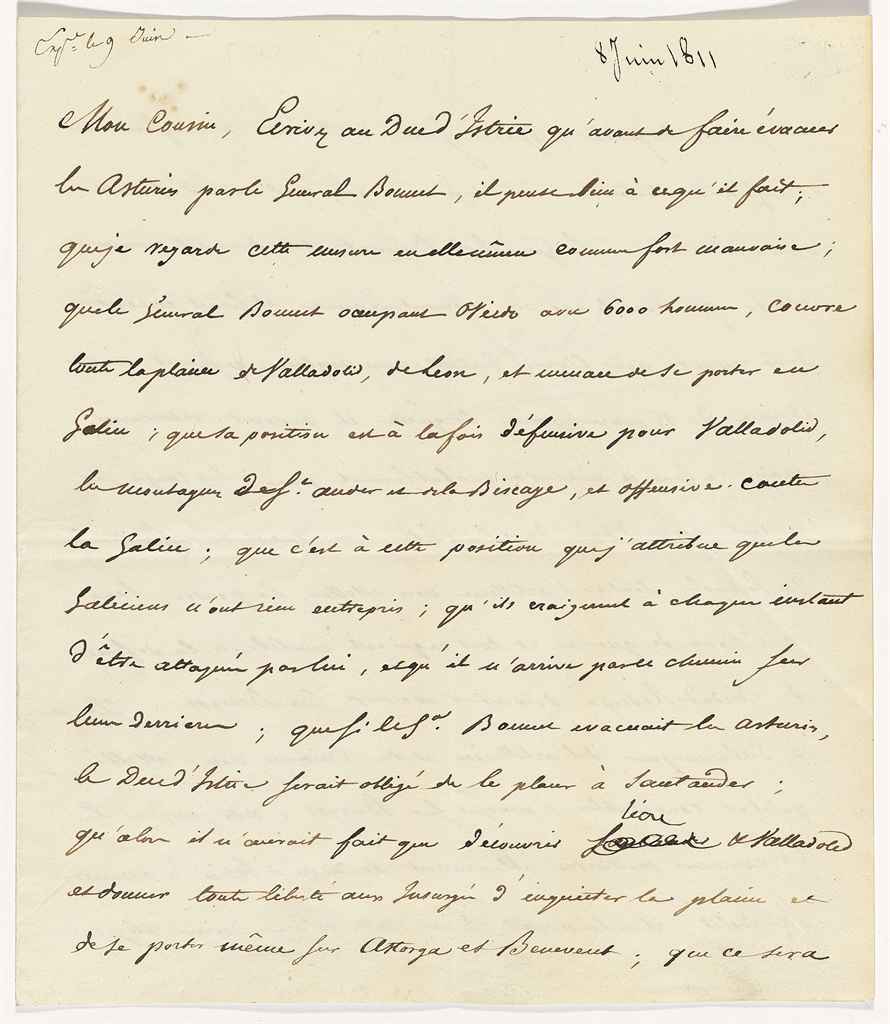 Exp.ée le 9 Juin
8 Juin 1811
Mon Cousin, Ecrivez au Duc d'Istrie qu'avant de faire évacuer
les Asturies par le Général Bonnet, il pense bien à ce qu'il fait;
que je regarde cette mesure en elle même comme fort mauvaise;
que le Général Bonnet occupant Oviedo avec 6000 hommes, couvre
toute la plaine de Valladolid, de Leon, et menace de se porter en
Galice; que sa position est à la fois défensive pour Valladolid,
les montagnes de St. ander et de la Biscaye, et offensive contre
la Galice; que c'est à cette position que j'attribue que les
Galiciens n'ont rien entrepris; qu'ils craignent à chaque instant
d'être attaqués par lui, et qu'il n'arrive par ce chemin sur
leurs derrieres; que si le Gal. Bonnet evacuait les asturies,
le Duc d'Istrie serait obligé de le placer à Santander;
léon
qu'alors il n'aurait fait que découvrir & Valladolid
et donner toute liberté aux Insurgés d'inquiéter la plaine et
de se porter même sur Astorga et Benevent; que ce sera